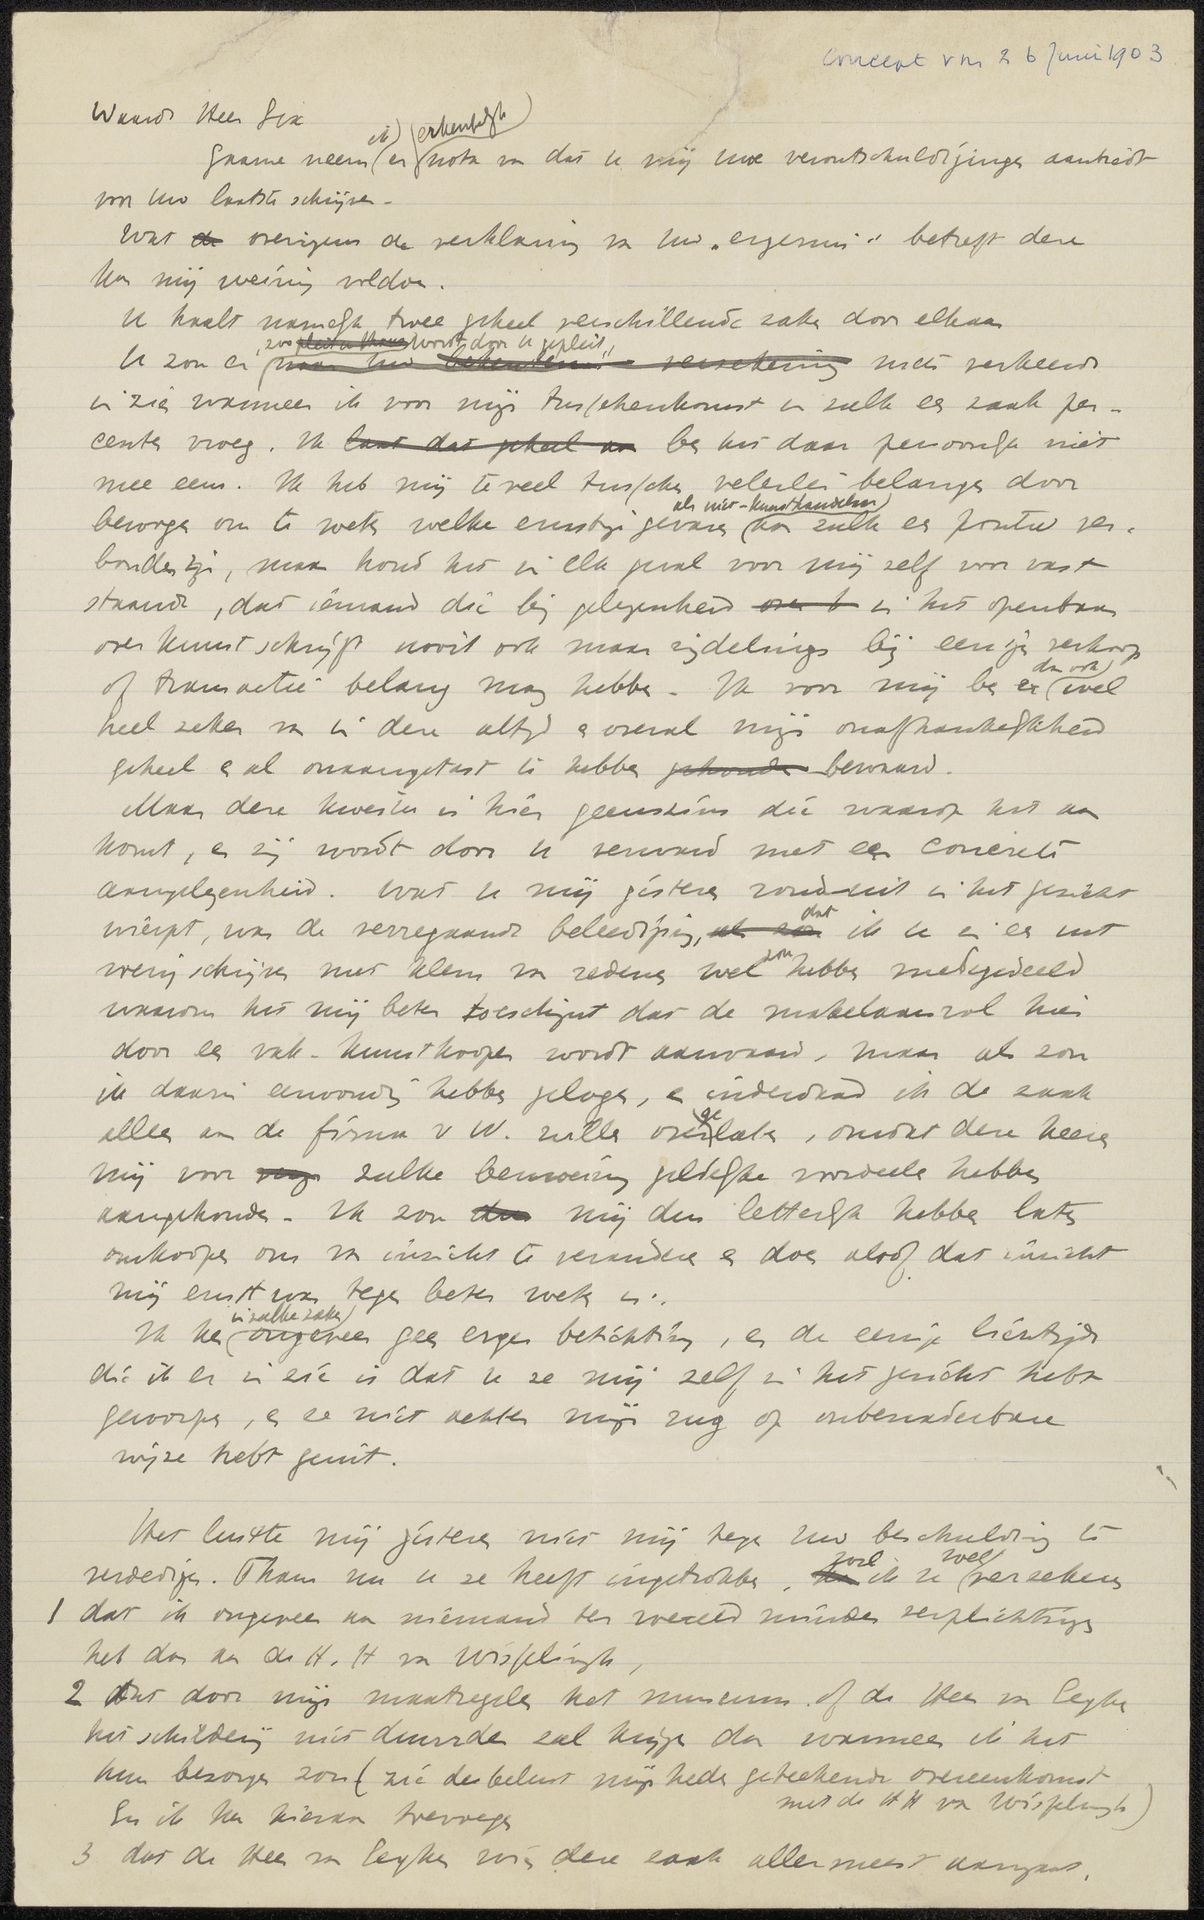 Concept van 26 Juni 1903
Waarde Heer Six
Gaarne neem ik er erkentelijk nota van dat u mij uwe verontschuldigingen aanbiedt
voor uw laatste schrijven.
Wat de overigens de verklaring van uw „ergernis" betreft deze
kan mij weinig voldoen.
U haalt namelijk twee geheel verschillende zaken door elkaar
U zou er, zoo wordt door u gepleit, niets verkeerds
in zien wanneer ik voor mijn tusschenkomst in zulk een zaak per-
centen vroeg. Ik laat dat geheel aan ben het daar persoonlijk niet
mee eens. Ik heb mij te veel tusschen velerlei belangen door
bewogen om te weten welke ernstige gevaren als niet-kunsthandelaar aan zulk een positie ver-
bonden zijn, maar houd het in elk geval voor mij zelf voor vast
staande, dat iemand die bij gelegenheid over k in het openbaar
over kunst schrijft nooit ook maar zijdelings bij eenige verkoop
of transactie belang mag hebben. Ik voor mij ben er dan ook wel
heel zeker van in deze altijd en overal mijn onafhankelijkheid
geheel en al onaangetast te hebben gehouden bewaard.
Maar deze kwestie is hier geenszins die waarop het aan
komt, en zij wordt door u verward met een concrete
aangelegenheid. Wat u mij gisteren ronduit in het gezicht
wierpt, was de verregaande beleediging, dat ik u in een uit
voerig schrijven met klem van redenen wel zou hebben medegedeeld
waarom het mij beter toeschijnt dat de makelaarsrol hier
door een vak-kunstkooper wordt aanvaard, maar als zou
ik daarin eenvoudig hebben gelogen, en inderdaad ik de zaak
alleen aan de firma v W. zullen overgelaten, omdat deze heeren
mij voor zulke bemoeiing geldelijke voordeelen hebben
aangeboden. Ik zou dus mij dus letterlijk hebben laten
omkoopen om van inzicht te veranderen en doen alsof dat inzicht
mij ernst was tegen beter weten in.
Ik ken in zulke zaken ongeveer geen erger betichting, en de eenige lichtzijde
die ik er in zie is dat u ze mij zelf in het gezicht hebt
geworpen, en ze niet achter mijn rug op onbenaderbare
wijze hebt geuit.
Het lustte mij gisteren niet mij tegen uw beschuldiging te
verdedigen. Thans nu u ze heeft ingetrokken, wil ik u wel verzekeren
1 dat ik ongeveer aan niemand ter wereld minder verplichtingen
heb dan aan de H.H van Wisselingh,
2 dat door mijn maatregelen het museum of de Heer van Eeghen
het schilderij niet duurder zal krijgen dan wanneer ik het
hun bezorgen zou (zie desbelust mijn heden geteekende overeenkomst
met de HH van Wisselingh)
En ik kan hieraan toevoegen
3 dat de Heer van Eeghen wie deze zaak allermeest aangaat,